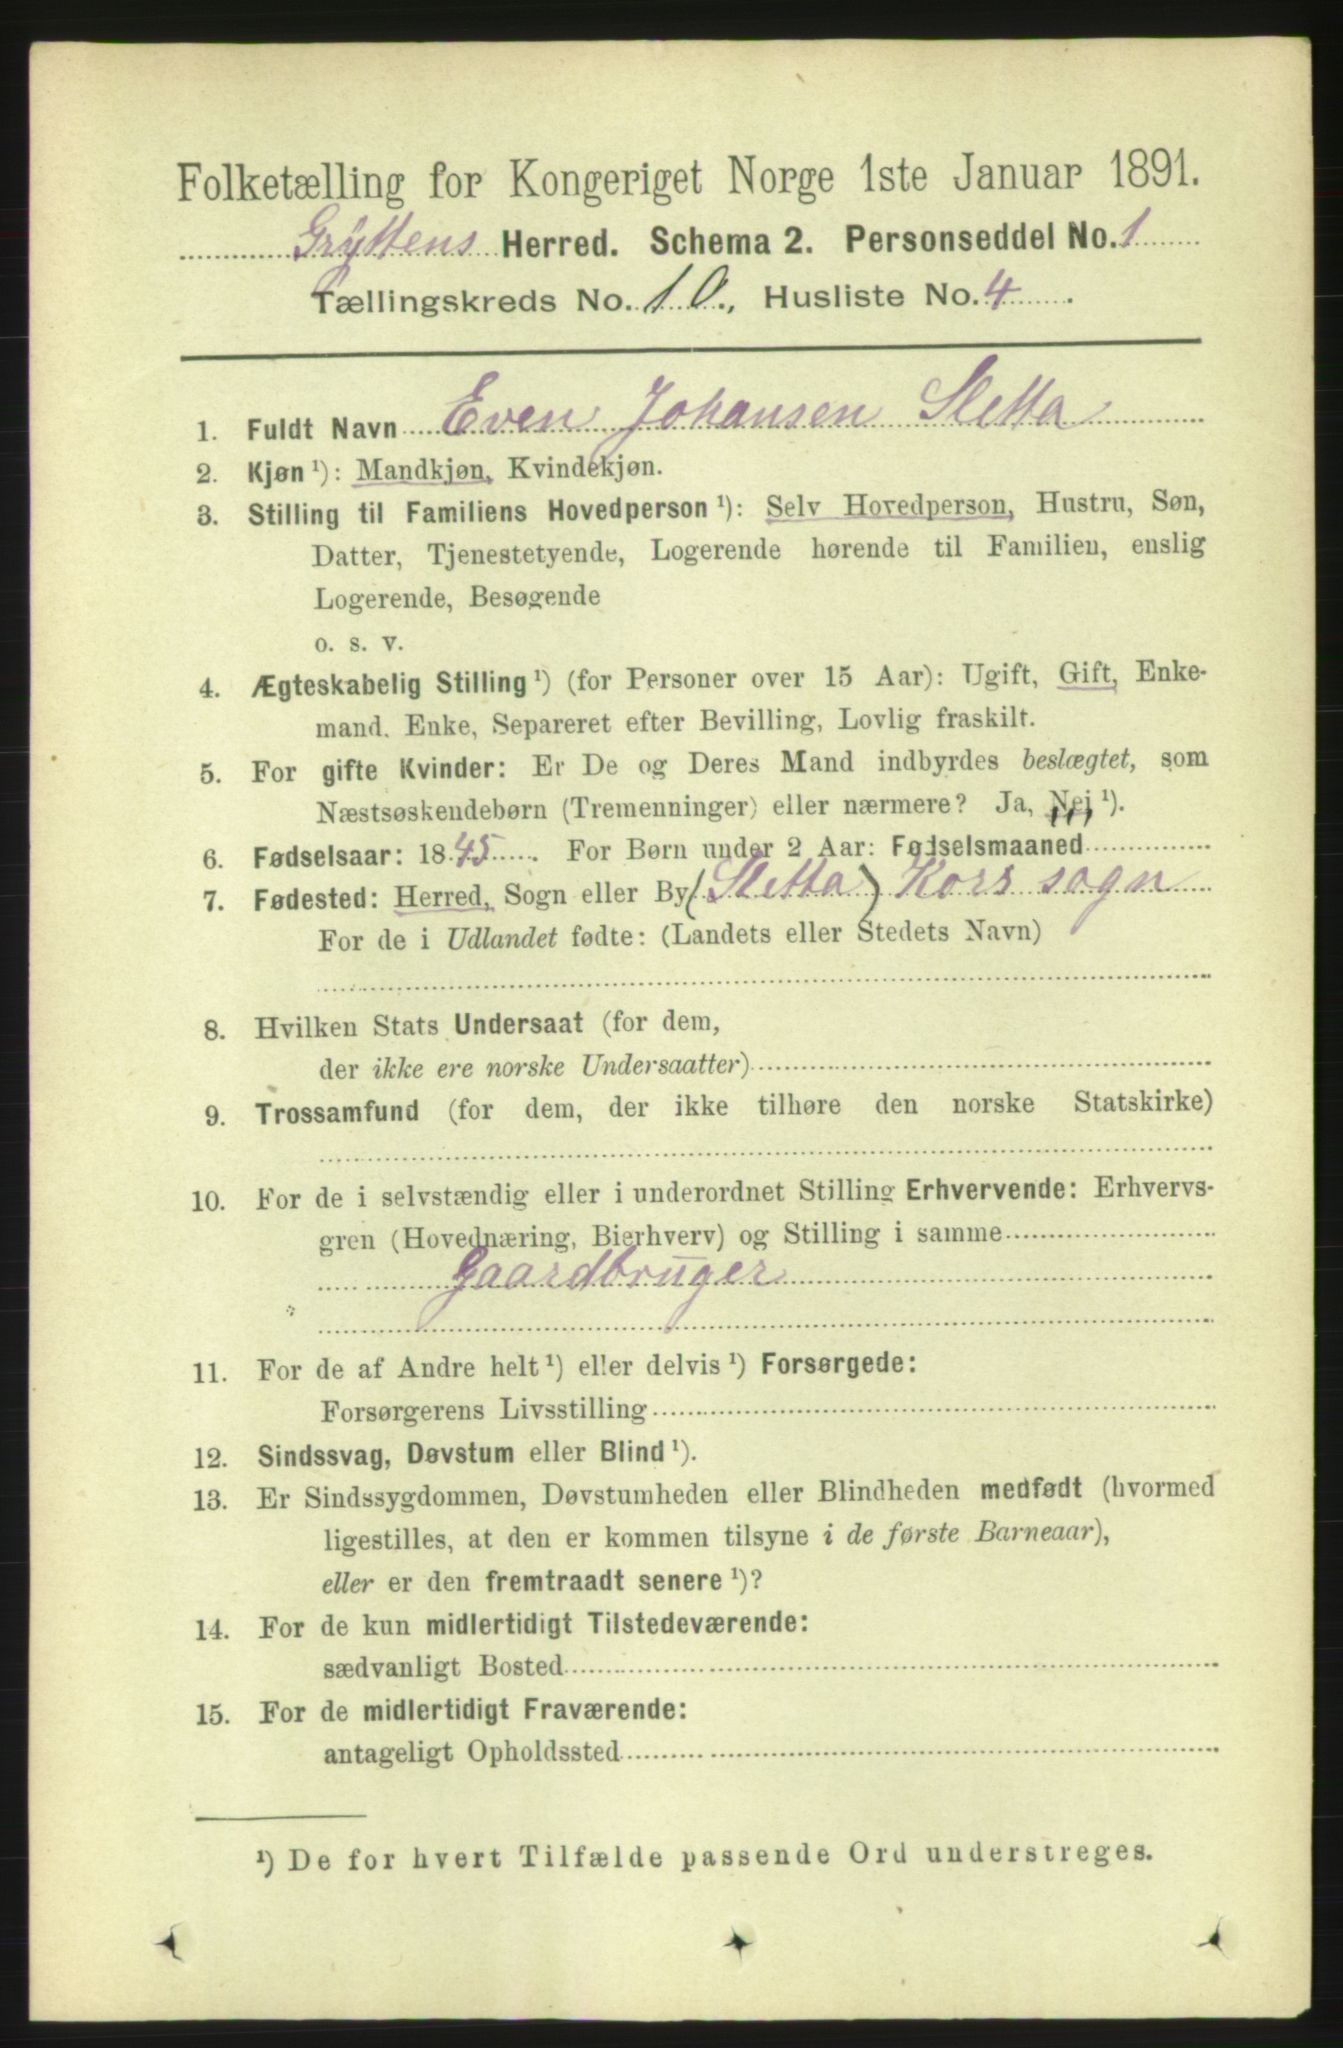 Folketælling for Kongeriget Norge 1ste Januar 1891.
Gryttens Herred. Schema 2. Personseddel No. 1
Tællingskreds No. 10., Husliste No. 4.
1. Fuldt Navn Even Johansen Sletta
2. Kjøn ¹): Mandkjøn, Kvindekjøn.
3. Stilling til Familiens Hovedperson ¹): Selv Hovedperson, Hustru, Søn,
Datter, Tjenestetyende, Logerende hørende til Familien, enslig
Logerende, Besøgende
o. s. v.
4. Ægteskabelig Stilling ¹) (for Personer over 15 Aar): Ugift, Gift, Enke-
mand. Enke, Separeret efter Bevilling, Lovlig fraskilt.
5. For gifte Kvinder: Er De og Deres Mand indbyrdes beslægtet, som
Næstsøskendebørn (Tremenninger) eller nærmere? Ja, Nej ¹).
6. Fødselsaar: 1845. For Børn under 2 Aar: Fødselsmaaned
7. Fødested: Herred, Sogn eller By (Sletta) Kors sogn
For de i Udlandet fødte: (Landets eller Stedets Navn)
8. Hvilken Stats Undersaat (for dem,
der ikke ere norske Undersaatter)
9. Trossamfund (for dem, der ikke tilhøre den norske Statskirke)
10. For de i selvstændig eller i underordnet Stilling Erhvervende: Erhvervs-
gren (Hovednæring, Bierhverv) og Stilling i samme
Gaardbruger
11. For de af Andre helt ¹) eller delvis ¹) Forsørgede:
Forsørgerens Livsstilling
12. Sindssvag, Døvstum eller Blind ¹).
13. Er Sindssygdommen, Døvstumheden eller Blindheden medfødt (hvormed
ligestilles, at den er kommen tilsyne i de første Barneaar),
eller er den fremtraadt senere ¹)?
14. For de kun midlertidigt Tilstedeværende:
sædvanligt Bosted
15. For de midlertidigt Fraværende:
antageligt Opholdssted
¹) De for hvert Tilfælde passende Ord understreges.